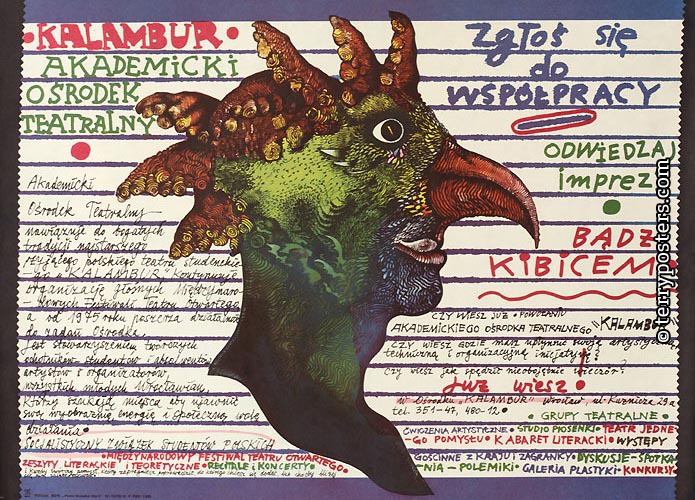 •KALAMBUR•
AKADEMICKI
OŚRODEK
TEATRALNY
Zgłoś się
do
WSPÓŁPRACY
ODWIEDZAJ
imprez
BĄDZ
KIBICEM
Akademicki
Ośrodek Teatralny
nawiązuje do bogatych
tradycji najstarszego
polskiego teatru studenckie-
-go „KALAMBUR" Kontynuuje
organizację głośnych Międzynaro-
-dowych Festiwali Teatru Otwartego
a od 1975 roku poszerza działalność
do zadań Ośrodka
Jest stowarzyszeniem twórczych
studentów i absolwentów
artystów i organizatorów,
wszystkich młodych Wrocławian,
Którzy szukają miejsca aby ujawnić
swą wyobraźnię energię i społeczną wolę
działania•
SOCJALISTYCZNY ZWIĄZEK STUDENTÓW POLSKICH
CZY WIESZ JUŻ • POWOŁANIU
AKADEMICKIEGO OŚRODKA TEATRALNEGO "KALAMBUR"
CZY WIESZ GDZIE MASZ UPŁYNNIĆ SWOJĄ ARTYSTYCZNĄ
techniczną i organizacyjną inicjatywę?
Czy wiesz jak spędzić nieobojętnie wieczór?
Już wiesz•
w Ośrodku „KALAMBUR" Wrocław, ul. Kuźnicza 29a
tel. 351-47, 480-12•
GRUPY TEATRALNE•
ĆWICZENIA ARTYSTYCZNE•STUDIO PIOSENKI•TEATR JEDNE-
-GO POMYSŁU•KABARET LITERACKI•WYSTĘPY
GOŚCINNE Z KRAJU I ZAGRANICY•DYSKUSJE-SPOTKA-
-NIA-POLEMIKI•GALERIA PLASTYKI•KONKURSY
•MIĘDZYNARODOWY FESTIWAL TEATRU OTWARTEGO•
ZESZYTY LITERACKIE I TEORETYCZNE•RECITALE I KONCERTY•
© terryposters.com